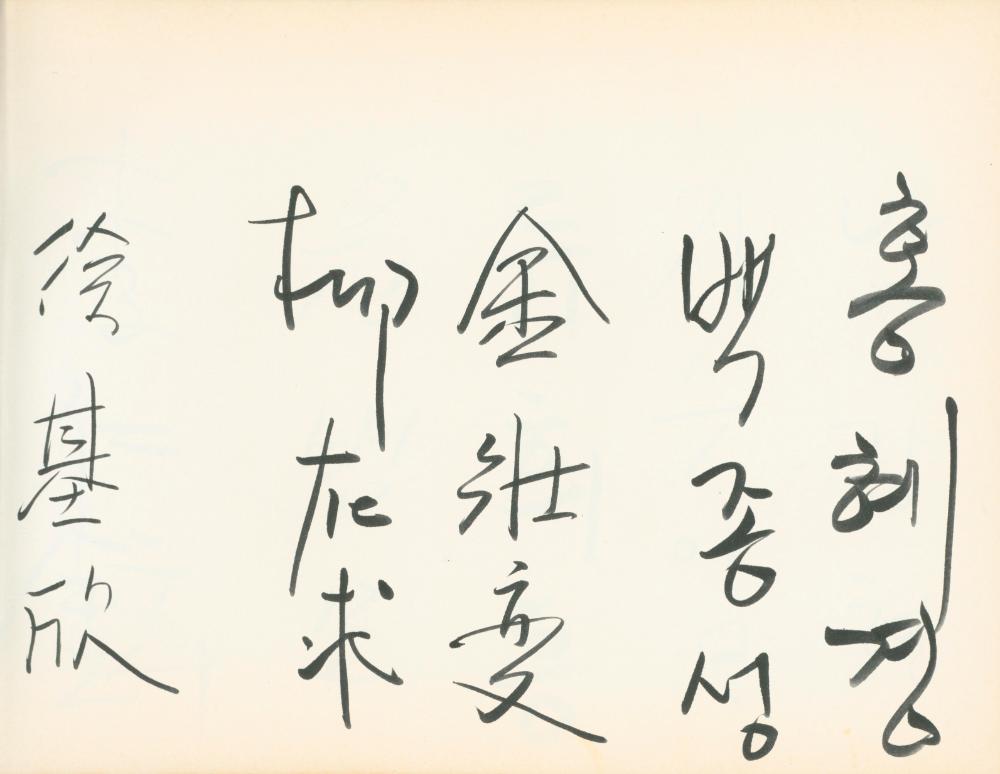 홍혜경
백종성
金壯燮
柳在求
徐基欣